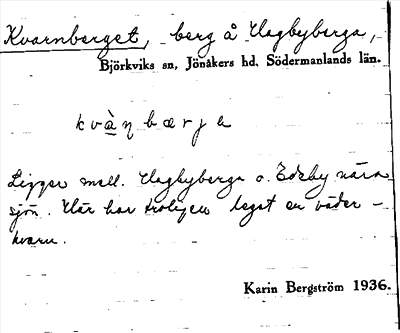 Kvarnberget, berg å Hagbyberga,
Björkviks sn, Jönåkers hd. Södermanlands län.
kvàṇbærje
Ligger mell. Hagbyberga o. Edeby nära
sjön. Här har troligen legat en väder-
kvarn.
Karin Bergström 1936.